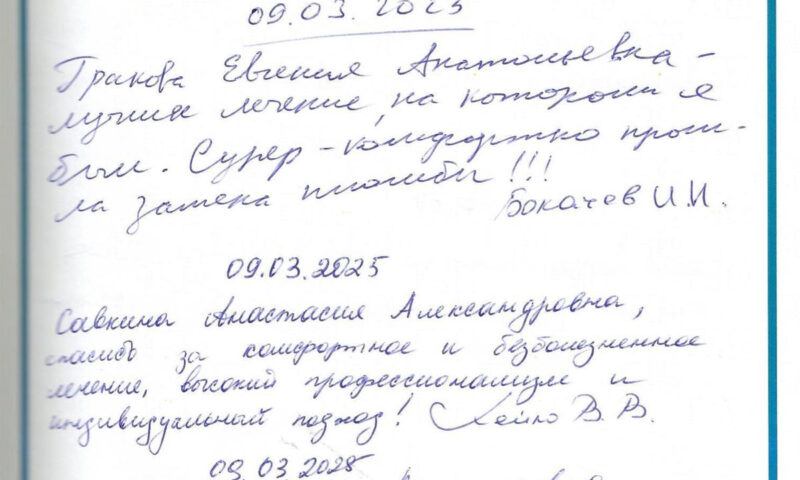 09.03.2025
Гракова Евгения Анатольевна -
лучшее лечение, на котором я
был. Супер - комфортно прош-
ла замена пломбы!!!
Бокачев И.И.
09.03.2025
Савкина Анастасия Александровна,
спасибо за комфортное и безболезненное
лечение, высокий профессионализм и
индивидуальный подход! Хейло В.В.
09.03.2025